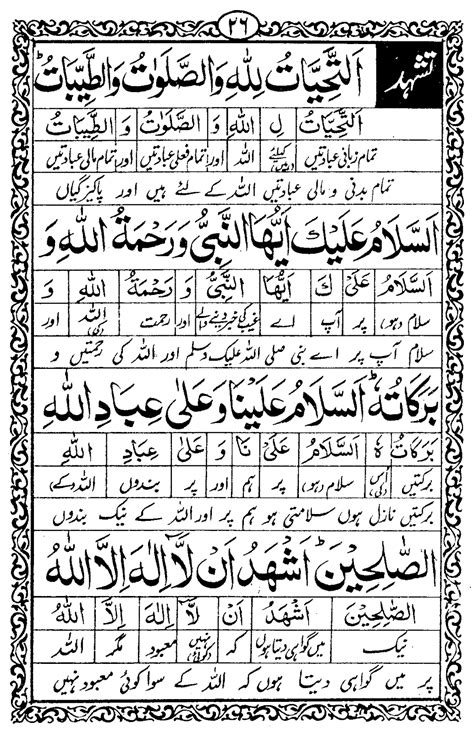 ۲۶
تشہد
اَلتَّحِيَّاتُ لِلّٰهِ وَالصَّلَوٰتُ وَالطَّيِّبَاتُ ؕ
اَلتَّحِيَّاتُ لِ اللّٰهِ وَ الصَّلَوٰتُ وَ الطَّيِّبَاتُ
تمام زبانی عبادتیں کیلئے (ہیں) اللہ اور تمام فعلی عبادتیں اور تمام مالی عبادتیں
تمام بدنی و مالی عبادتیں اللہ کے لئے ہیں اور پاکیزگیاں
اَلسَّلَامُ عَلَيْكَ اَيُّهَا النَّبِيُّ وَرَحْمَةُ اللّٰهِ وَ
اَلسَّلَامُ عَلَىْ كَ اَيُّهَا النَّبِيُّ وَ رَحْمَةُ اللّٰهِ وَ
سلام (ہو) پر آپ اے غیب کی خبر دینے والے اور رحمت اللہ (کی) اور
سلام آپ پر اے نبی صلی اللہ علیک وسلم اور اللہ کی رحمتیں و
بَرَكَاتُهٗ ؕ اَلسَّلَامُ عَلَيْنَا وَعَلٰى عِبَادِ اللّٰهِ
بَرَكَاتُ هٗ اَلسَّلَامُ عَلَىْ نَا وَ عَلٰى عِبَادِ اللّٰهِ
برکتیں اُس (کی) سلام (ہو) پر ہم اور پر بندوں اللہ (کے)
برکتیں نازل ہوں سلامتی ہو ہم پر اور اللہ کے نیک بندوں
الصّٰلِحِيْنَ ؕ اَشْهَدُ اَنْ لَّاۤ اِلٰهَ اِلَّا اللّٰهُ
الصّٰلِحِيْنَ اَشْهَدُ اَنْ لَّاۤ اِلٰهَ اِلَّا اللّٰهُ
نیک میں گواہی دیتا ہوں کہ نہیں (کوئی) معبود مگر اللہ
پر میں گواہی دیتا ہوں کہ اللہ کے سوا کوئی معبود نہیں